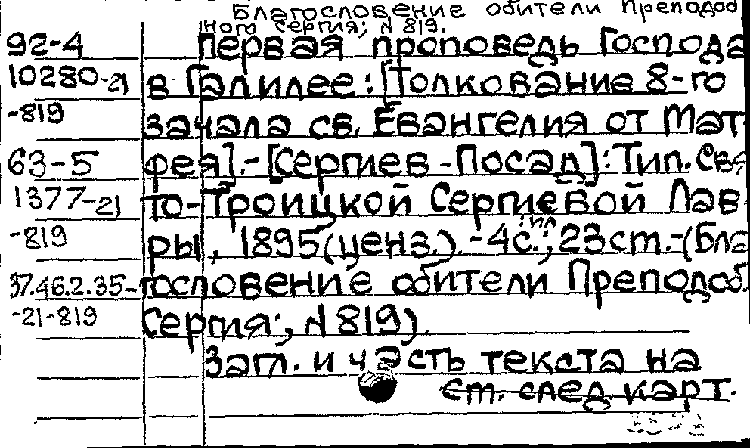 Благословение обители Преподоб
ного Сергия; N 819.
92-4 Первая проповедь Господа
10280-21 в Галилее: [Толкование 8-го
-819 зачала св. Евангелия от Мат-
63-5 фея].-[Сергиев-Посад]: Тип. Свя
1377-21 то-Троицкой Сергиевой Лав-
-819 ры, 1895(ценз.).-4с.: ил.; 23см.-(Бла
37.46.2.35- гословение обители Преподоб.
-21-819 Сергия; N 819).
Загл. и часть текста на
см. след карт.